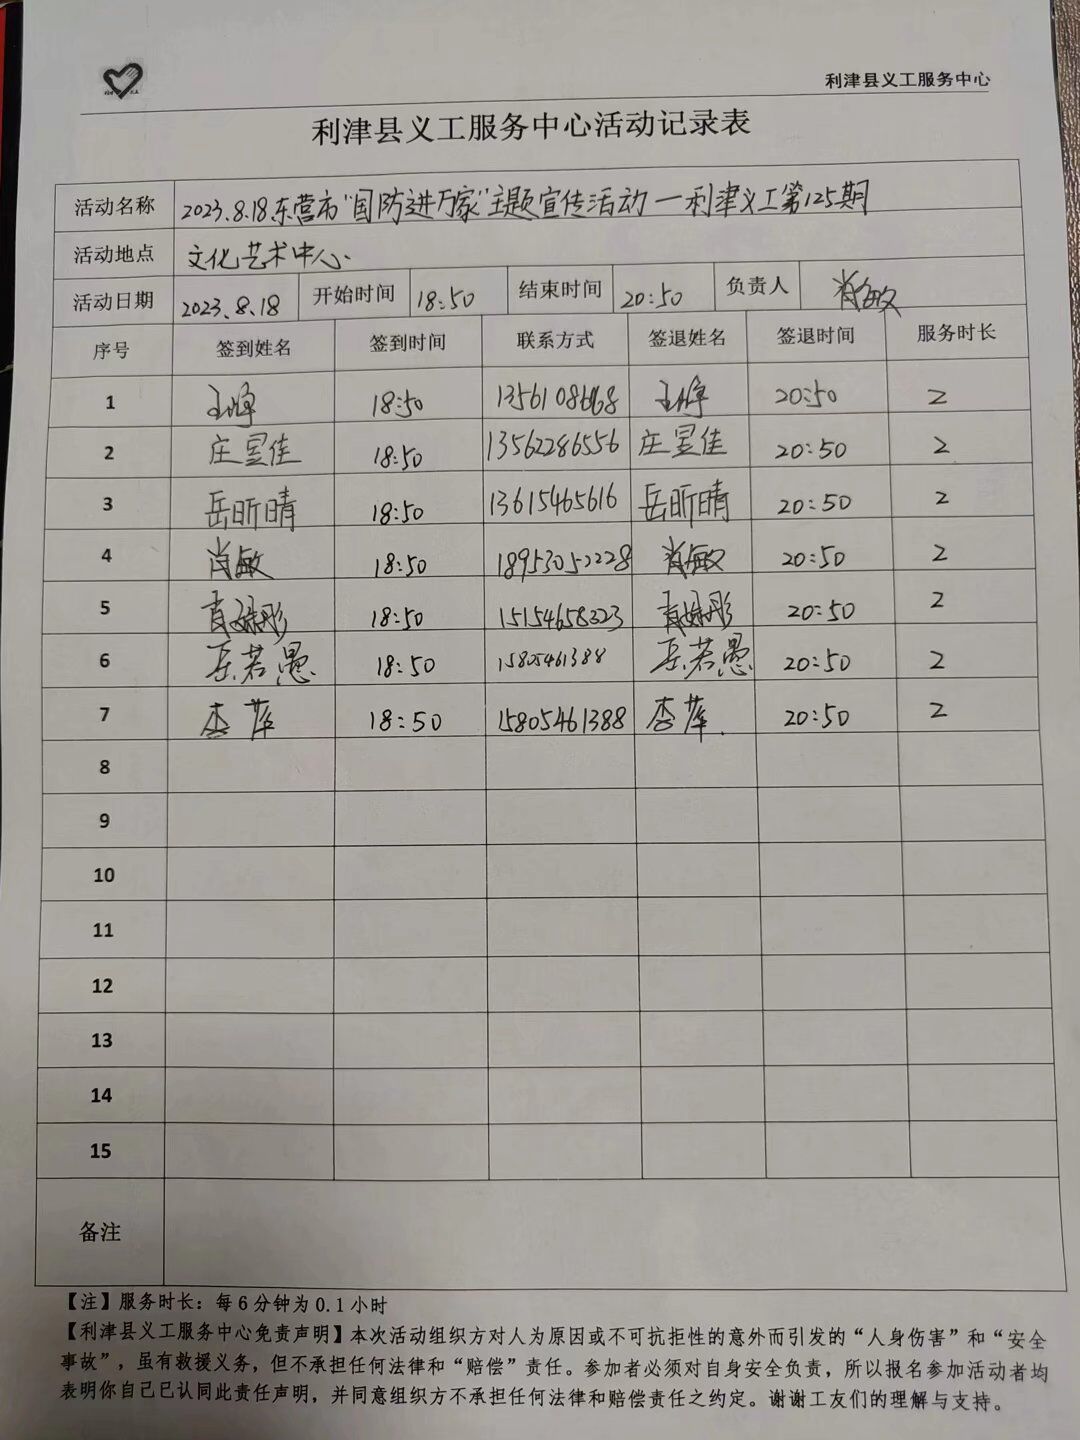 利津县义工服务中心
利津县义工服务中心活动记录表
活动名称 2023.8.18东营市"国防进万家"主题宣传活动一利津义工第125期
活动地点 文化艺术中心.
活动日期 2023.8.18 开始时间 18:50 结束时间 20:50 负责人 肖敏
序号 签到姓名 签到时间 联系方式 签退姓名 签退时间 服务时长
1 18:50 20:50 2
2 庄昱佳 18:50 13562286556 庄昱佳 20:50 2
3 岳昕晴 18:50 13615465616 岳昕晴 20:50 2
4 肖敏 18:50 18953052228 肖敏 20:50 2
5 18:50 15154658323 20:50 2
6 岳若愚 18:50 15805461388 岳若愚 20:50 2
7 李萍 18:50 15805461388 李萍 20:50 2
8
9
10
11
12
13
14
15
备注
【注】服务时长：每6分钟为0.1小时
【利津县义工服务中心免责声明】本次活动组织方对人为原因或不可抗拒性的意外而引发的“人身伤害”和“安全
事故”，虽有救援义务，但不承担任何法律和“赔偿”责任。参加者必须对自身安全负责，所以报名参加活动者均
表明你自己已认同此责任声明，并同意组织方不承担任何法律和赔偿责任之约定。谢谢工友们的理解与支持。